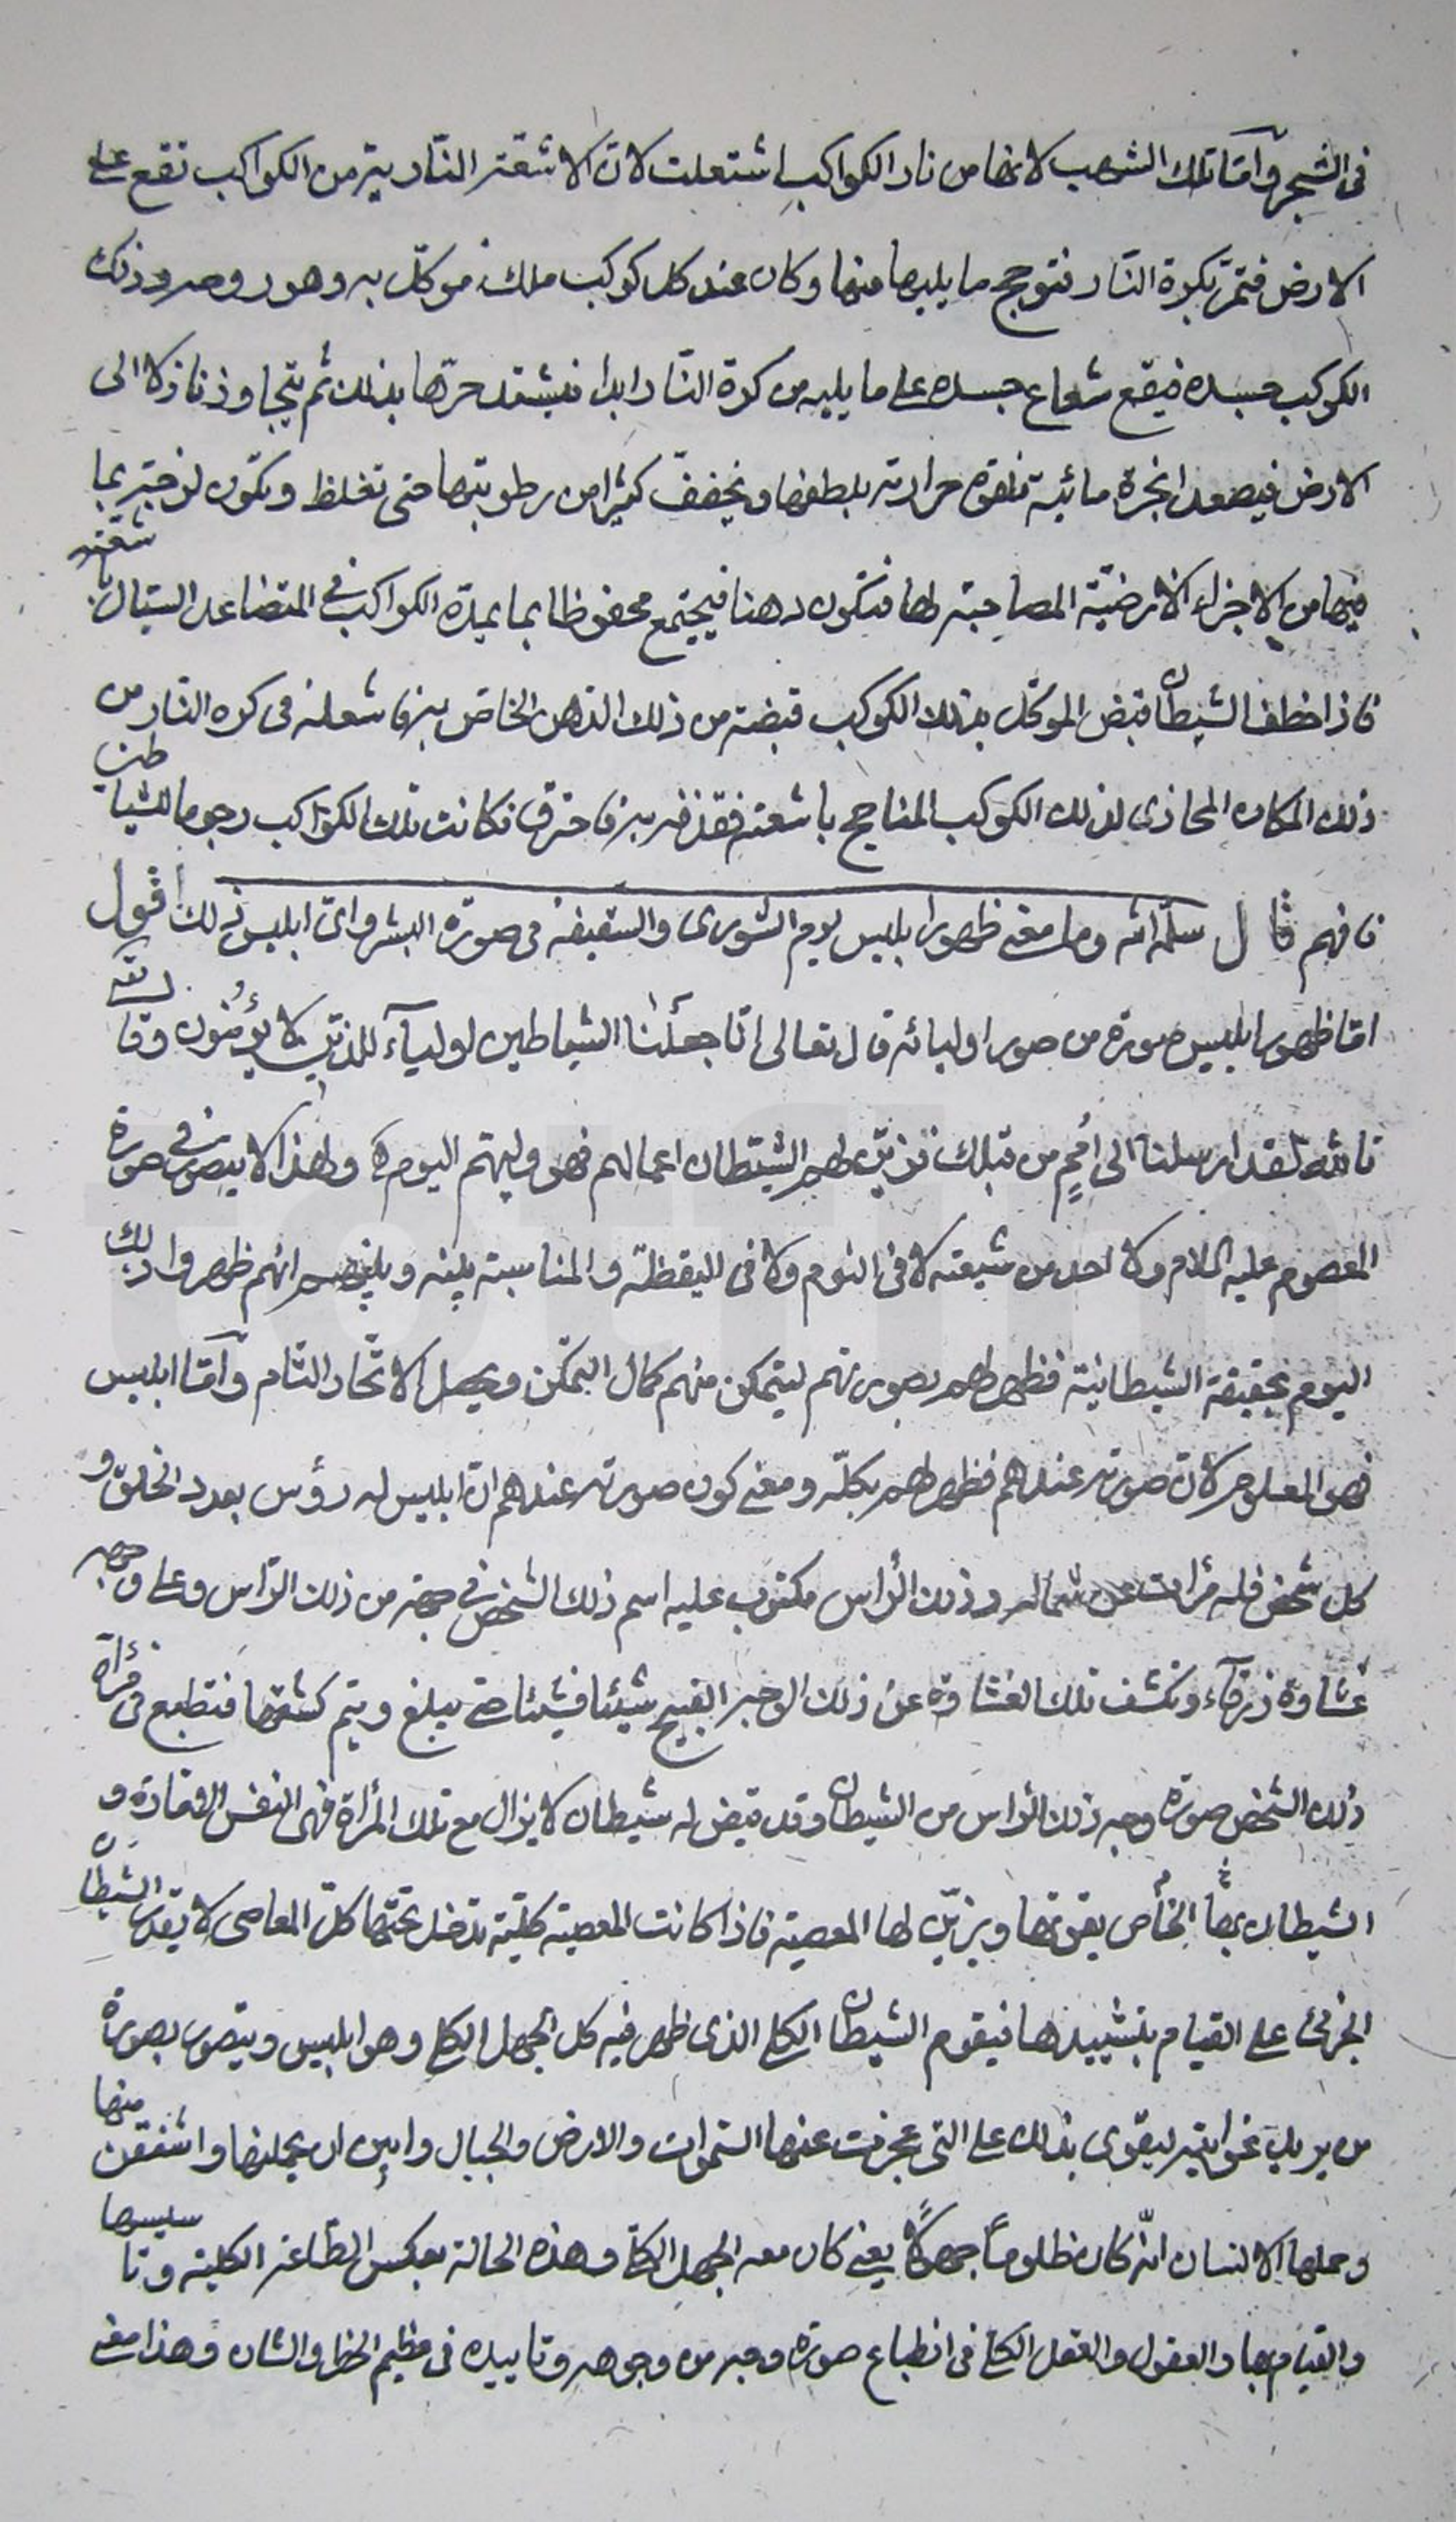 في الشجر وأمّا تلك الشهب لانها من نار الكواكب اشتعلت لانّ الاشعّة الناريّة من الكواكب تقع على
الارض فتمرّ بكرة النّار فتوجج ما يليها منها وكان عند كل كوكب ملك موكّل به وهو روحه وذلك
الكوكب جسده فيقع شعاع جسده على ما يليه من كرة النّار ابدا فيشتد حرّها بذلك ثم يتجاوز نازلا الى
الارض فيصعد ابخرة مائية فلقوة حرارته يلطفها ويخفف كثيرا من رطوبتها حتى تغلظ وتكون لزجة بما
فيها من الاجزاء الارضيّة المصاحبة لها فتكون دهنا فيجتمع محفوظا بما يمده الكواكب في المتصاعد السيّال باشعته
فاذا خطف الشيطان قبض الموكّل بذلك الكوكب قبضة من ذلك الدهن الخاص به فاشعله في كره النّار من
ذلك المكان المحاذى لذلك الكوكب المتاجج باشعته فقذفه به فاحترق فكانت تلك الكواكب رجوما للشياطين
فافهم قال سلّمه الله وما معنى ظهور ابليس يوم الشورى والسقيفة في صورة البشر واىّ ابليس ذلك اقول
امّا ظهور ابليس صورة من صور اوليائه قال تعالى انّا جعلنا الشياطين اولياء للذين لا يؤمنون وقال تعالى
تالله لقد ارسلنا الى أمم من قبلك فزيّن لهم الشيطان اعمالهم فهو وليهم اليوم ولهذا لا يتصور في صورة
المعصوم عليه السلام ولا احد من شيعته لا في النوم ولا في اليقظة والمناسبة بينه وبينهم انهم ظهروا ذلك
اليوم بحقيقة الشيطانيّة فظهر لهم بصورتهم ليتمكن منهم كمال التمكن ويحصل الاتّحاد التّام وأمّا ابليس
فهو المعلوم لانّ صورته عندهم فظهر لهم بكلّه ومعنى كون صورته عندهم انّ ابليس له رؤس بعدد الخلق و
كل شخص فله مرات عن شماله وذلك الرّاس مكتوب عليه اسم ذلك الشخص في جهة من ذلك الرّاس وعلى وجهه
غشاوة زرقآء وتكشف تلك الغشاوة عن ذلك الوجه القبيح شيئا فشيئا حتى يبلغ ويتم كشفها فتطبع في مرآة
ذلك الشخص صورة وجه ذلك الرّاس من الشيطان وقد قيّض له شيطان لا يزال مع تلك المرآة فهى النفس الامّارة و
الشيطان بها الخاص يقوتها ويزيّن لها المعصية فاذا كانت المعصية كليّة تدخل تحتها كلّ المعاصى لا يقدر الشيطان
الجزئى على القيام بتشييدها فيقوم الشيطان الكلى الذى ظهر فيه كل الجهل الكلى وهو ابليس ويتصور بصورة
من يريد غوايته ليقوى بذلك على التى عجزت عنها السّموات والارض والجبال وابين ان يحملنها واشفقن منها
وحملها الانسان انّه كان ظلوماً جهولاً يعنى كان معه الجهل الكلّى وهذه الحالة بعكس الطّاعة الكلية وتاسيسها
والقيام بها والعقول والعقل الكلى في انطباع صورة وجه من وجوهه وتاييده في عظيم الخطر والشان وهذا معنى